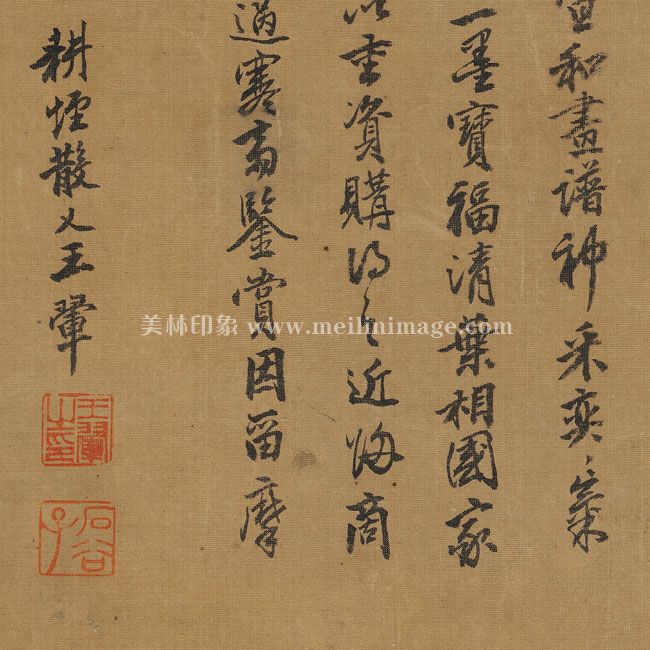 宣和畫譜神采奕〻氣
一墨寶福清葉相國家
以重資購得之近商
過寒齋鑒賞因留摩
耕煙散人王翬
王翬之印
石谷子
美林印象 www.meilinimage.com